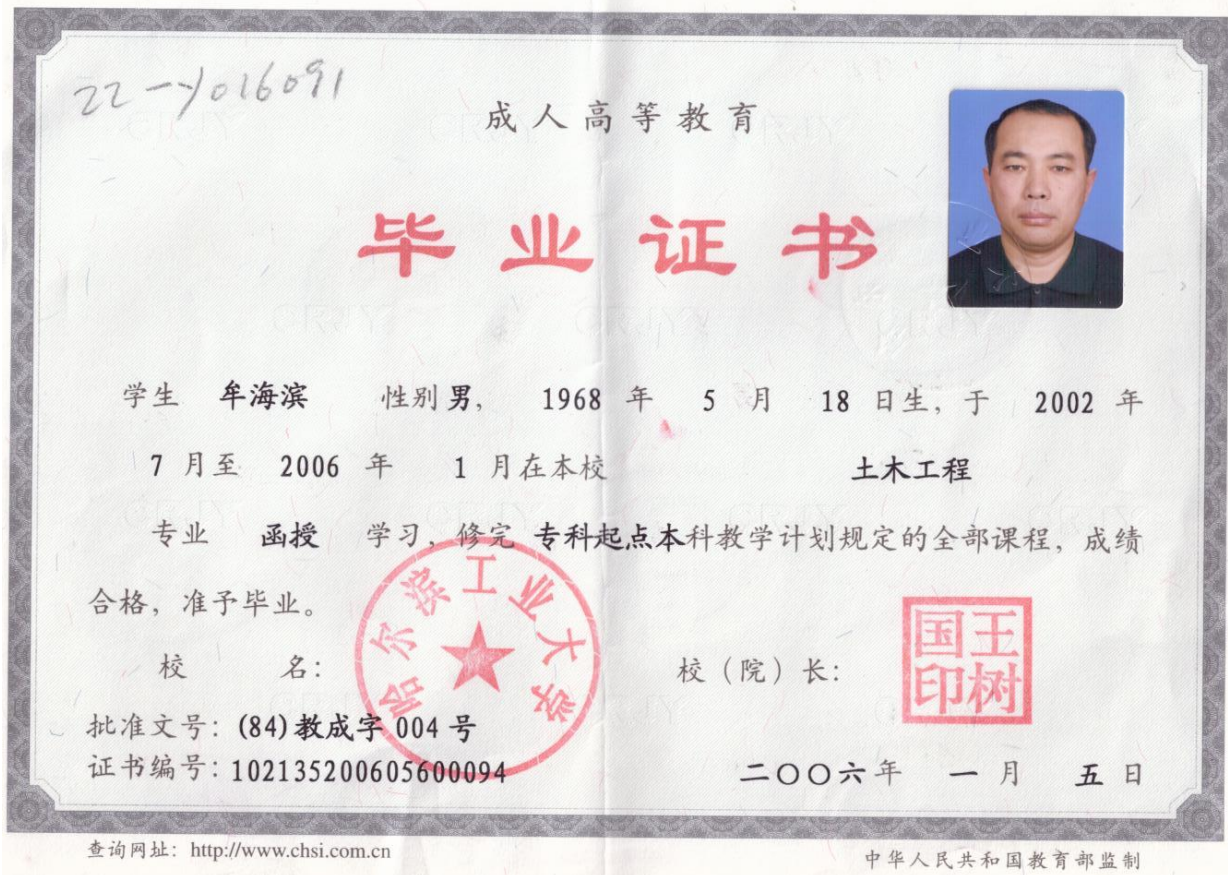 22-y016091
成人高等教育
毕业证书
学生 牟海滨 性别 男, 1968 年 5 月 18 日生, 于 2002 年
7 月至 2006 年 1 月在本校 土木工程
专业 函授 学习, 修完 专科起点本科教学计划规定的全部课程, 成绩
合格, 准予毕业。
哈尔滨工业大学
校 名: 校(院)长:
王树国印
批准文号: (84)教成字 004 号
证书编号: 102135200605600094 二〇〇六年 一 月 五 日
查询网址: http://www.chsi.com.cn 中华人民共和国教育部监制